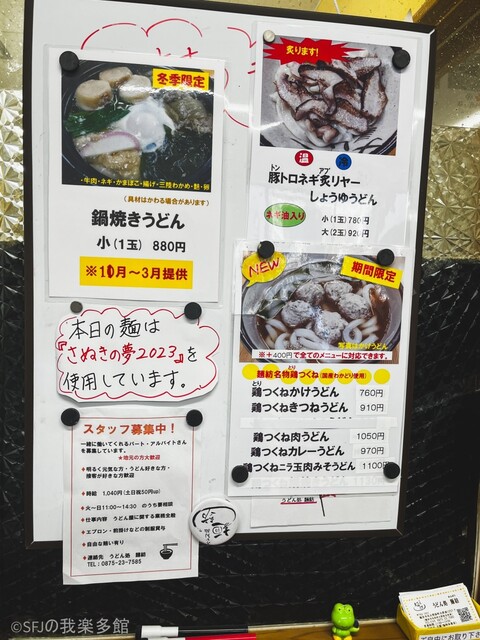 冬季限定
・牛肉・ネギ・かまぼこ・揚げ・三陸わかめ・麩・卵
(具材はかわる場合があります)
鍋焼きうどん
小(1玉) 880円
※10月～3月提供
炙ります!
温 冷
豚トロネギ炙リヤー
トン アブ
しょうゆうどん
ネギ油入り
小(1玉)780円
大(2玉)920円
本日の麺は
『さぬきの夢2023』を
使用しています。
NEW
期間限定
写真はかけうどん
※+400円で全てのメニューに対応できます。
麺紡名物鶏つくね(国産若かどり使用)
とり
鶏つくねかけうどん 760円
鶏つくねきつねうどん 910円
鶏つくね肉うどん 1050円
鶏つくねカレーうどん 970円
鶏つくねニラ玉肉みそうどん 1100円
スタッフ募集中!
一緒に働いてくれるパート・アルバイトさん
を募集しています。
★地元の方大歓迎
♦明るく元気な方・うどん好きな方・
接客が好きな方歓迎
♦時給 1,040円(土日祝50円up)
♦火～日11:00～14:30 のうち要相談
♦仕事内容 うどん屋に関する業務全般
♦エプロン・前掛けなどの制服貸与
♦自由な賄い有り
♦連絡先 うどん処 麺紡
TEL:0875-23-7585
うどん処 麺紡
うどん処 麺紡
ご自由にお取り下さ
©SFJの我楽多館